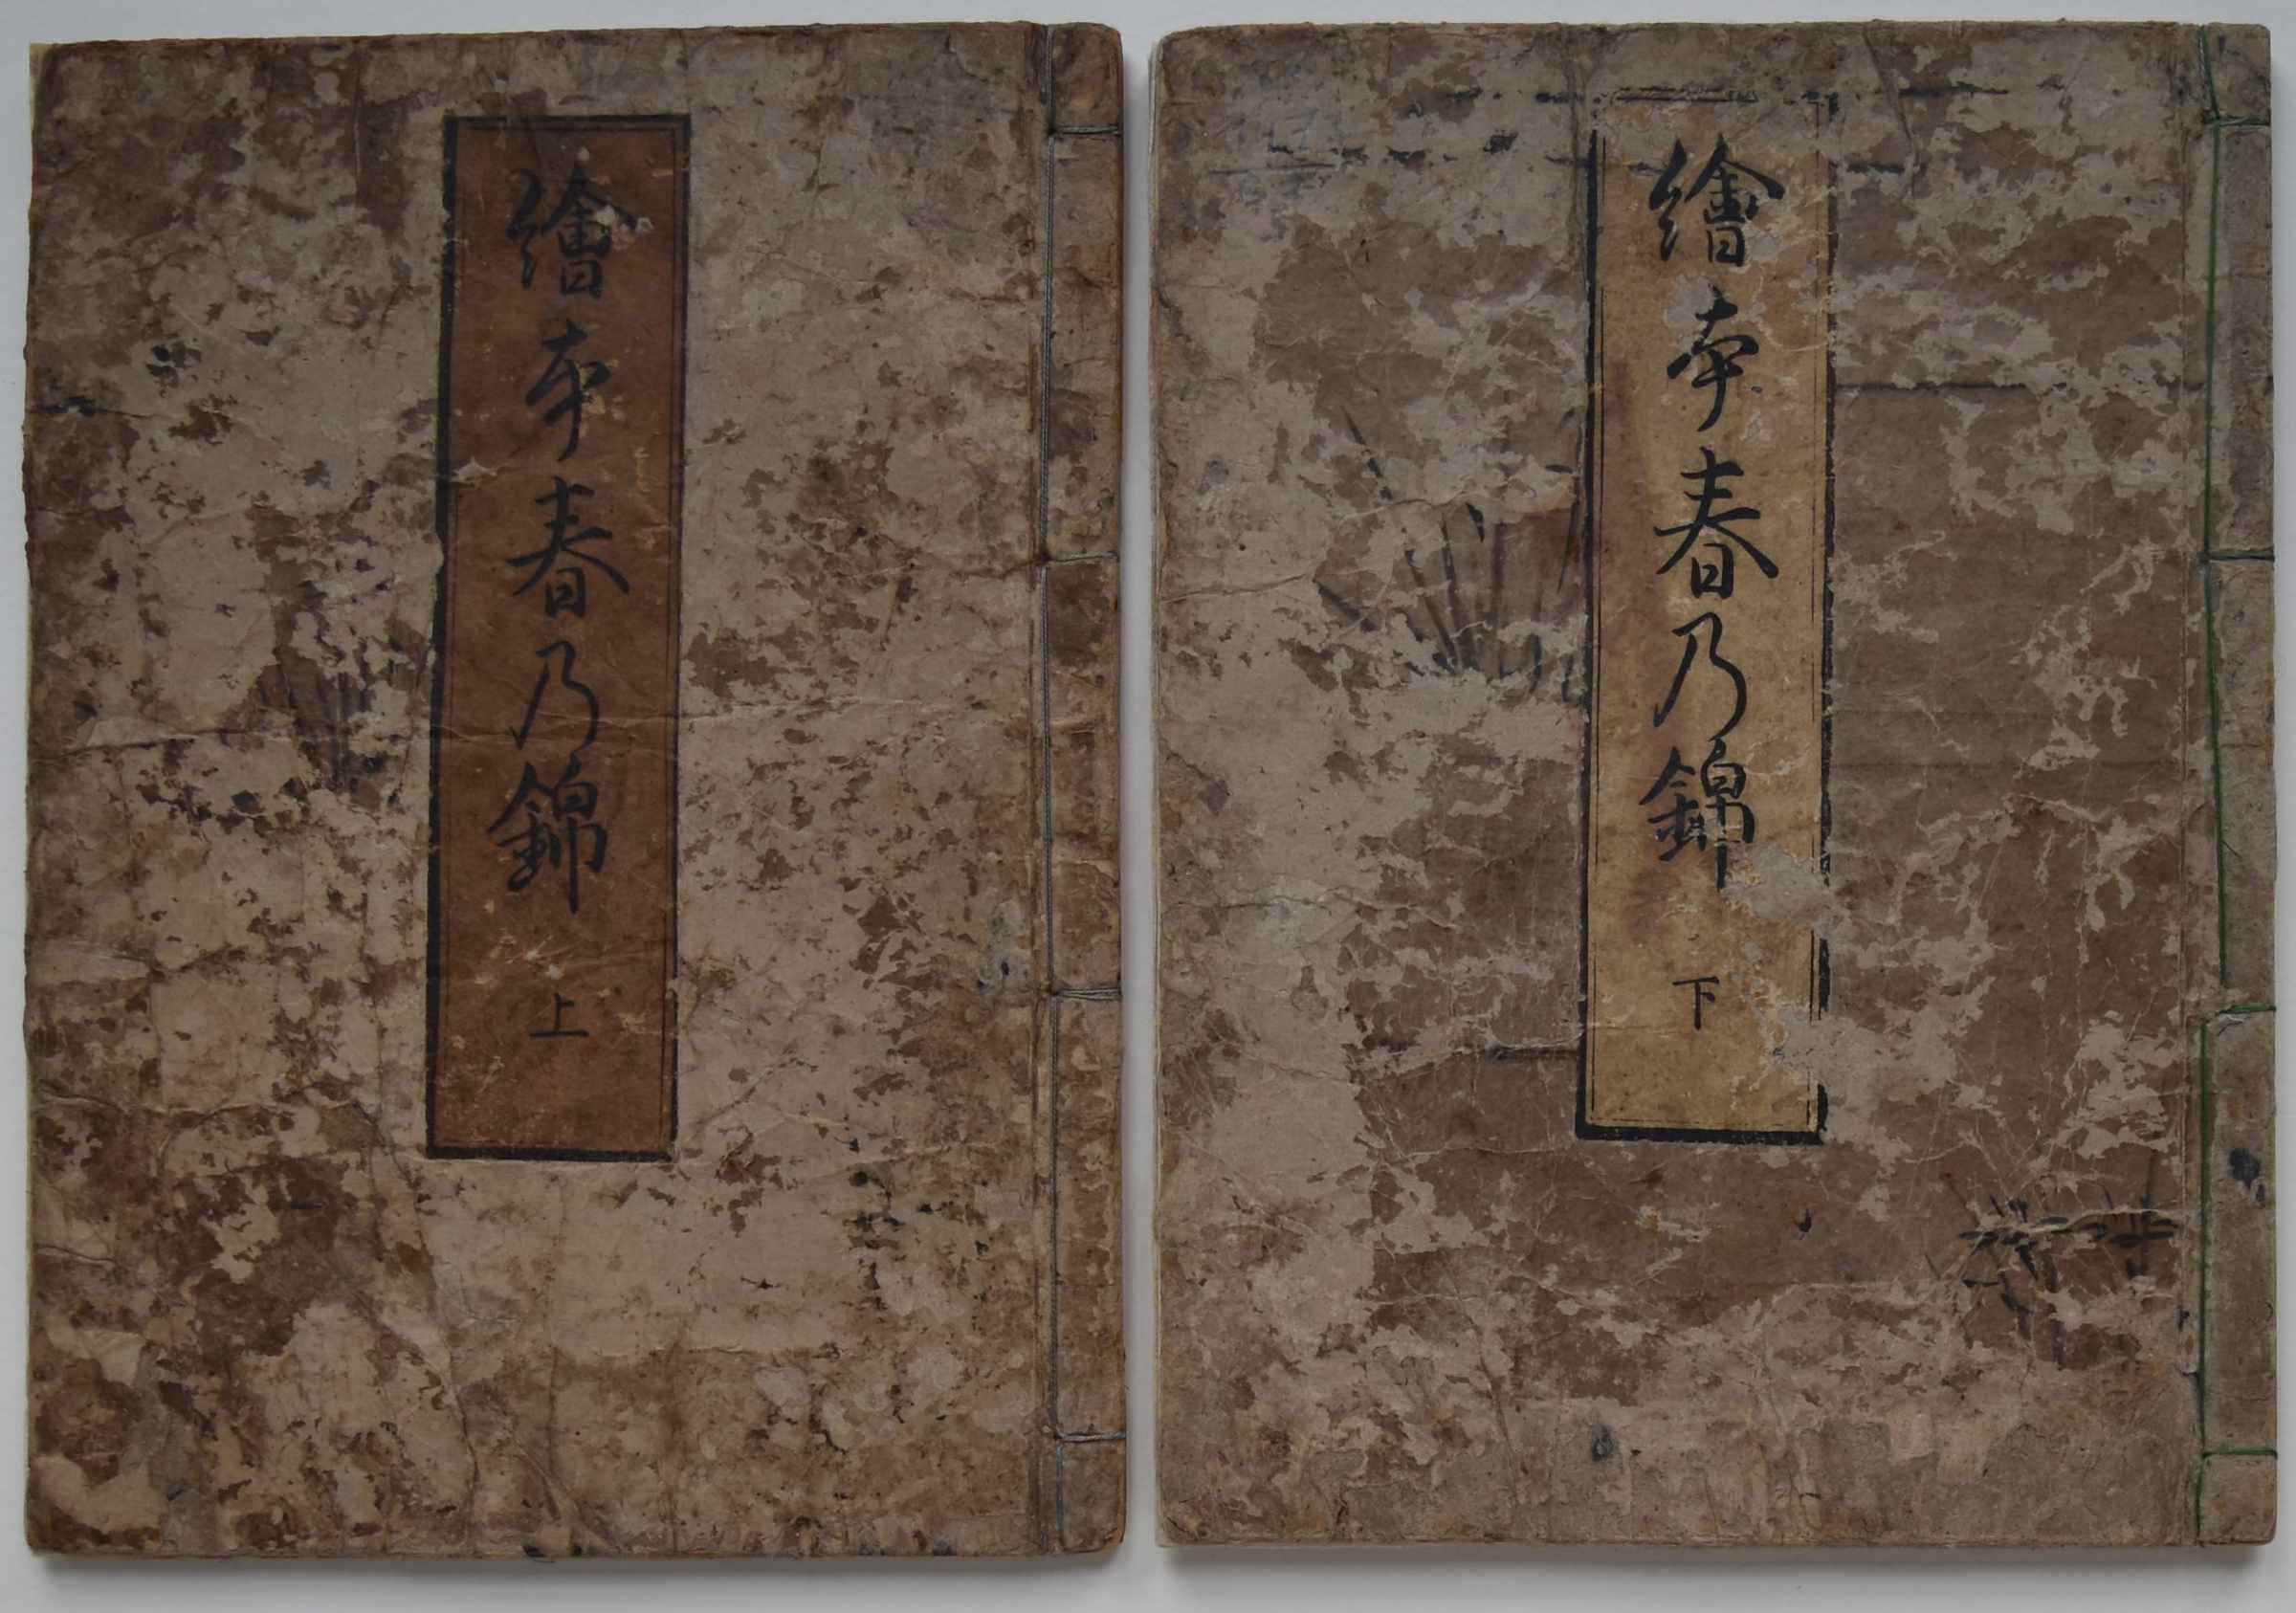 繪本春乃錦 上
繪本春乃錦 下